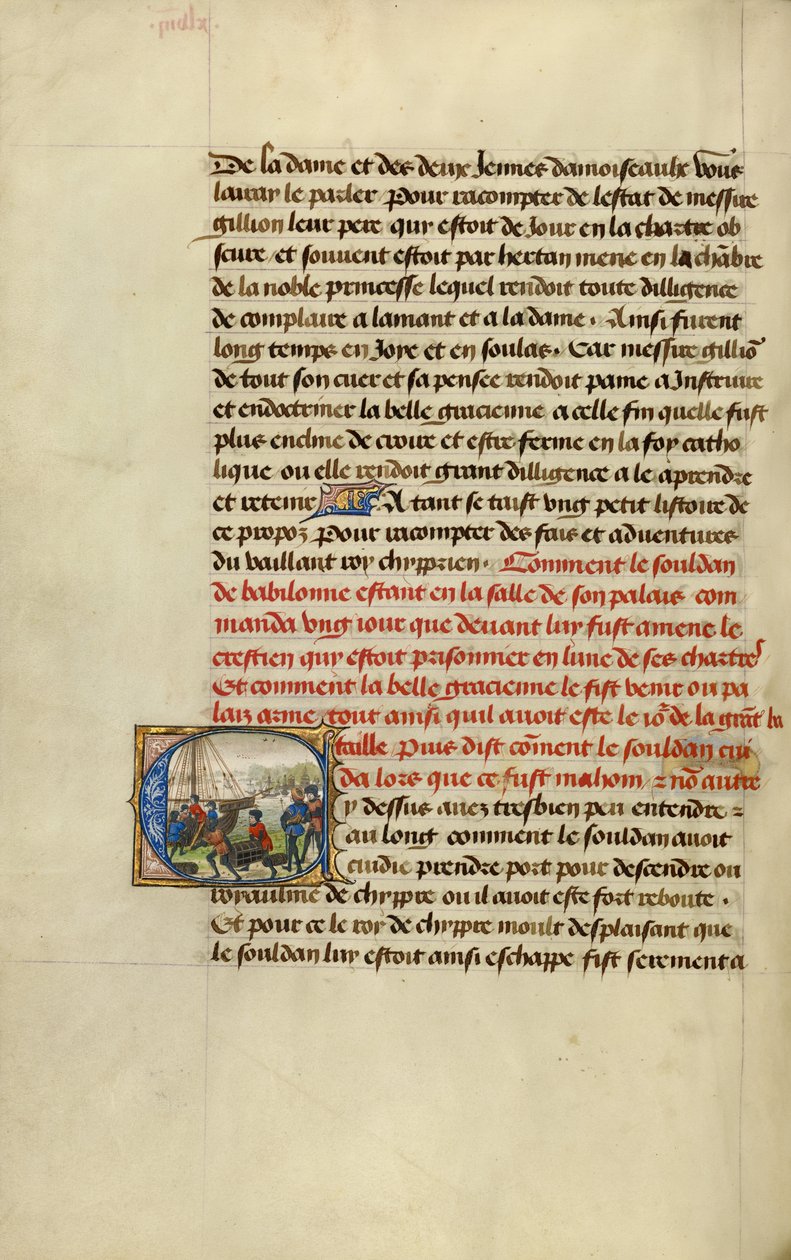 De la dame et des deux Jennes damoiseaulx vous
lairay le parler Pour racompter de lestat de messire
gillion leur pere quy estoit de Jour en la chartre ob
scure / et souvent estoit par hertan mene en la chãbre
de la noble princesse lequel rendoit toute dilligence
de complaire a lamant et a la dame . Ainsi furent
long temps en Joye et en soulas . Car messire gilliõ
de tout son cuer et sa pensee rendoit paine a Instruire
et endoctriner la belle gracienne a celle fin quelle fust
plus encline de croire et estre ferme en la foy catho
lique ou elle rendoit grant dilligence a le aprendre
et retenir A tant se taist vng petit listoire de
ce propoz Pour racompter des fais et adventures
du vaillant roy chypprien . Comment le souldan
de babilonne estant en la salle de son palais com
manda vng iour que devant luy fust amene le
crestien quy estoit prisonnier en lune de ses chartres
Et comment la belle gracienne le fist venir ou pa
laiz arme tout ainsi quil avoit este le iõr de la grãt ba
taille Puis dist cõment le souldan cui
da lors que ce fust mahom / z nõ autre
Cy dessus avez tresbien peu entendre z
au long comment le souldan avoit
cuidie prendre port pour descendre ou
royaulme de chyppre ou il avoit este fort reboute .
Et pour ce le roy de chyppre moult desplaisant que
le souldan luy estoit ainsi eschappe fist serement a